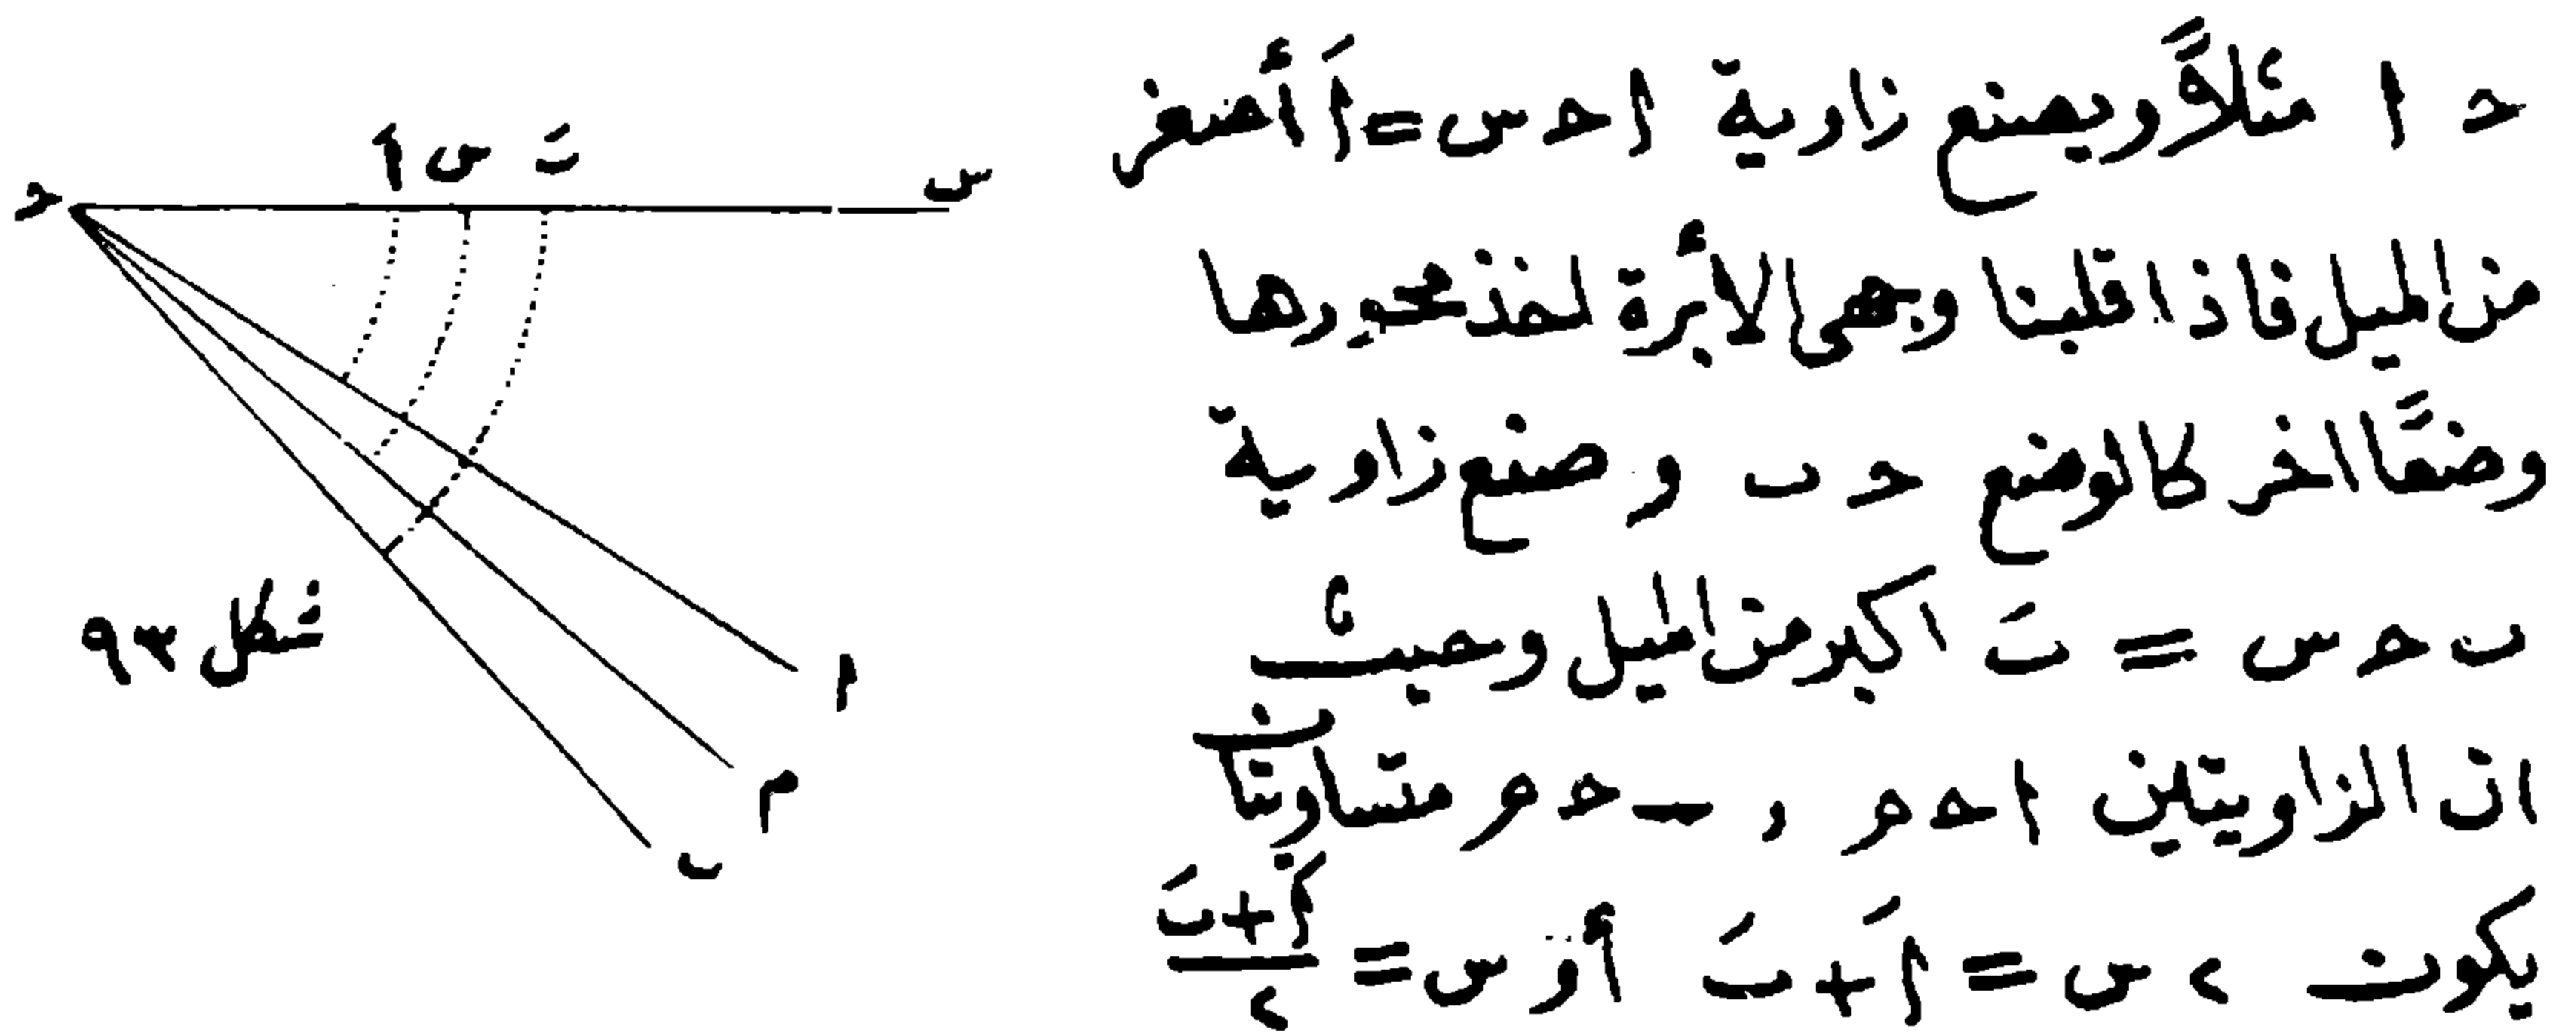 حـ ا مثلاً ويصنع زاوية ا حـ س = اَ أصغر
من الميل فاذا قلبنا وجهى الأبرة لخذ محورها
وضعًا اخر كالوضع حـ ب وصنع زاوية
ب حـ س = بَ اكبر من الميل وحيث
ان الزاويتين ا حـ م ، ب حـ م متساويتان
يكون ٢ س = اَ + بَ أو س = اَ + بَ / ٢
اَ س بَ
س
حـ
ا
م
ب
شكل ٩٣